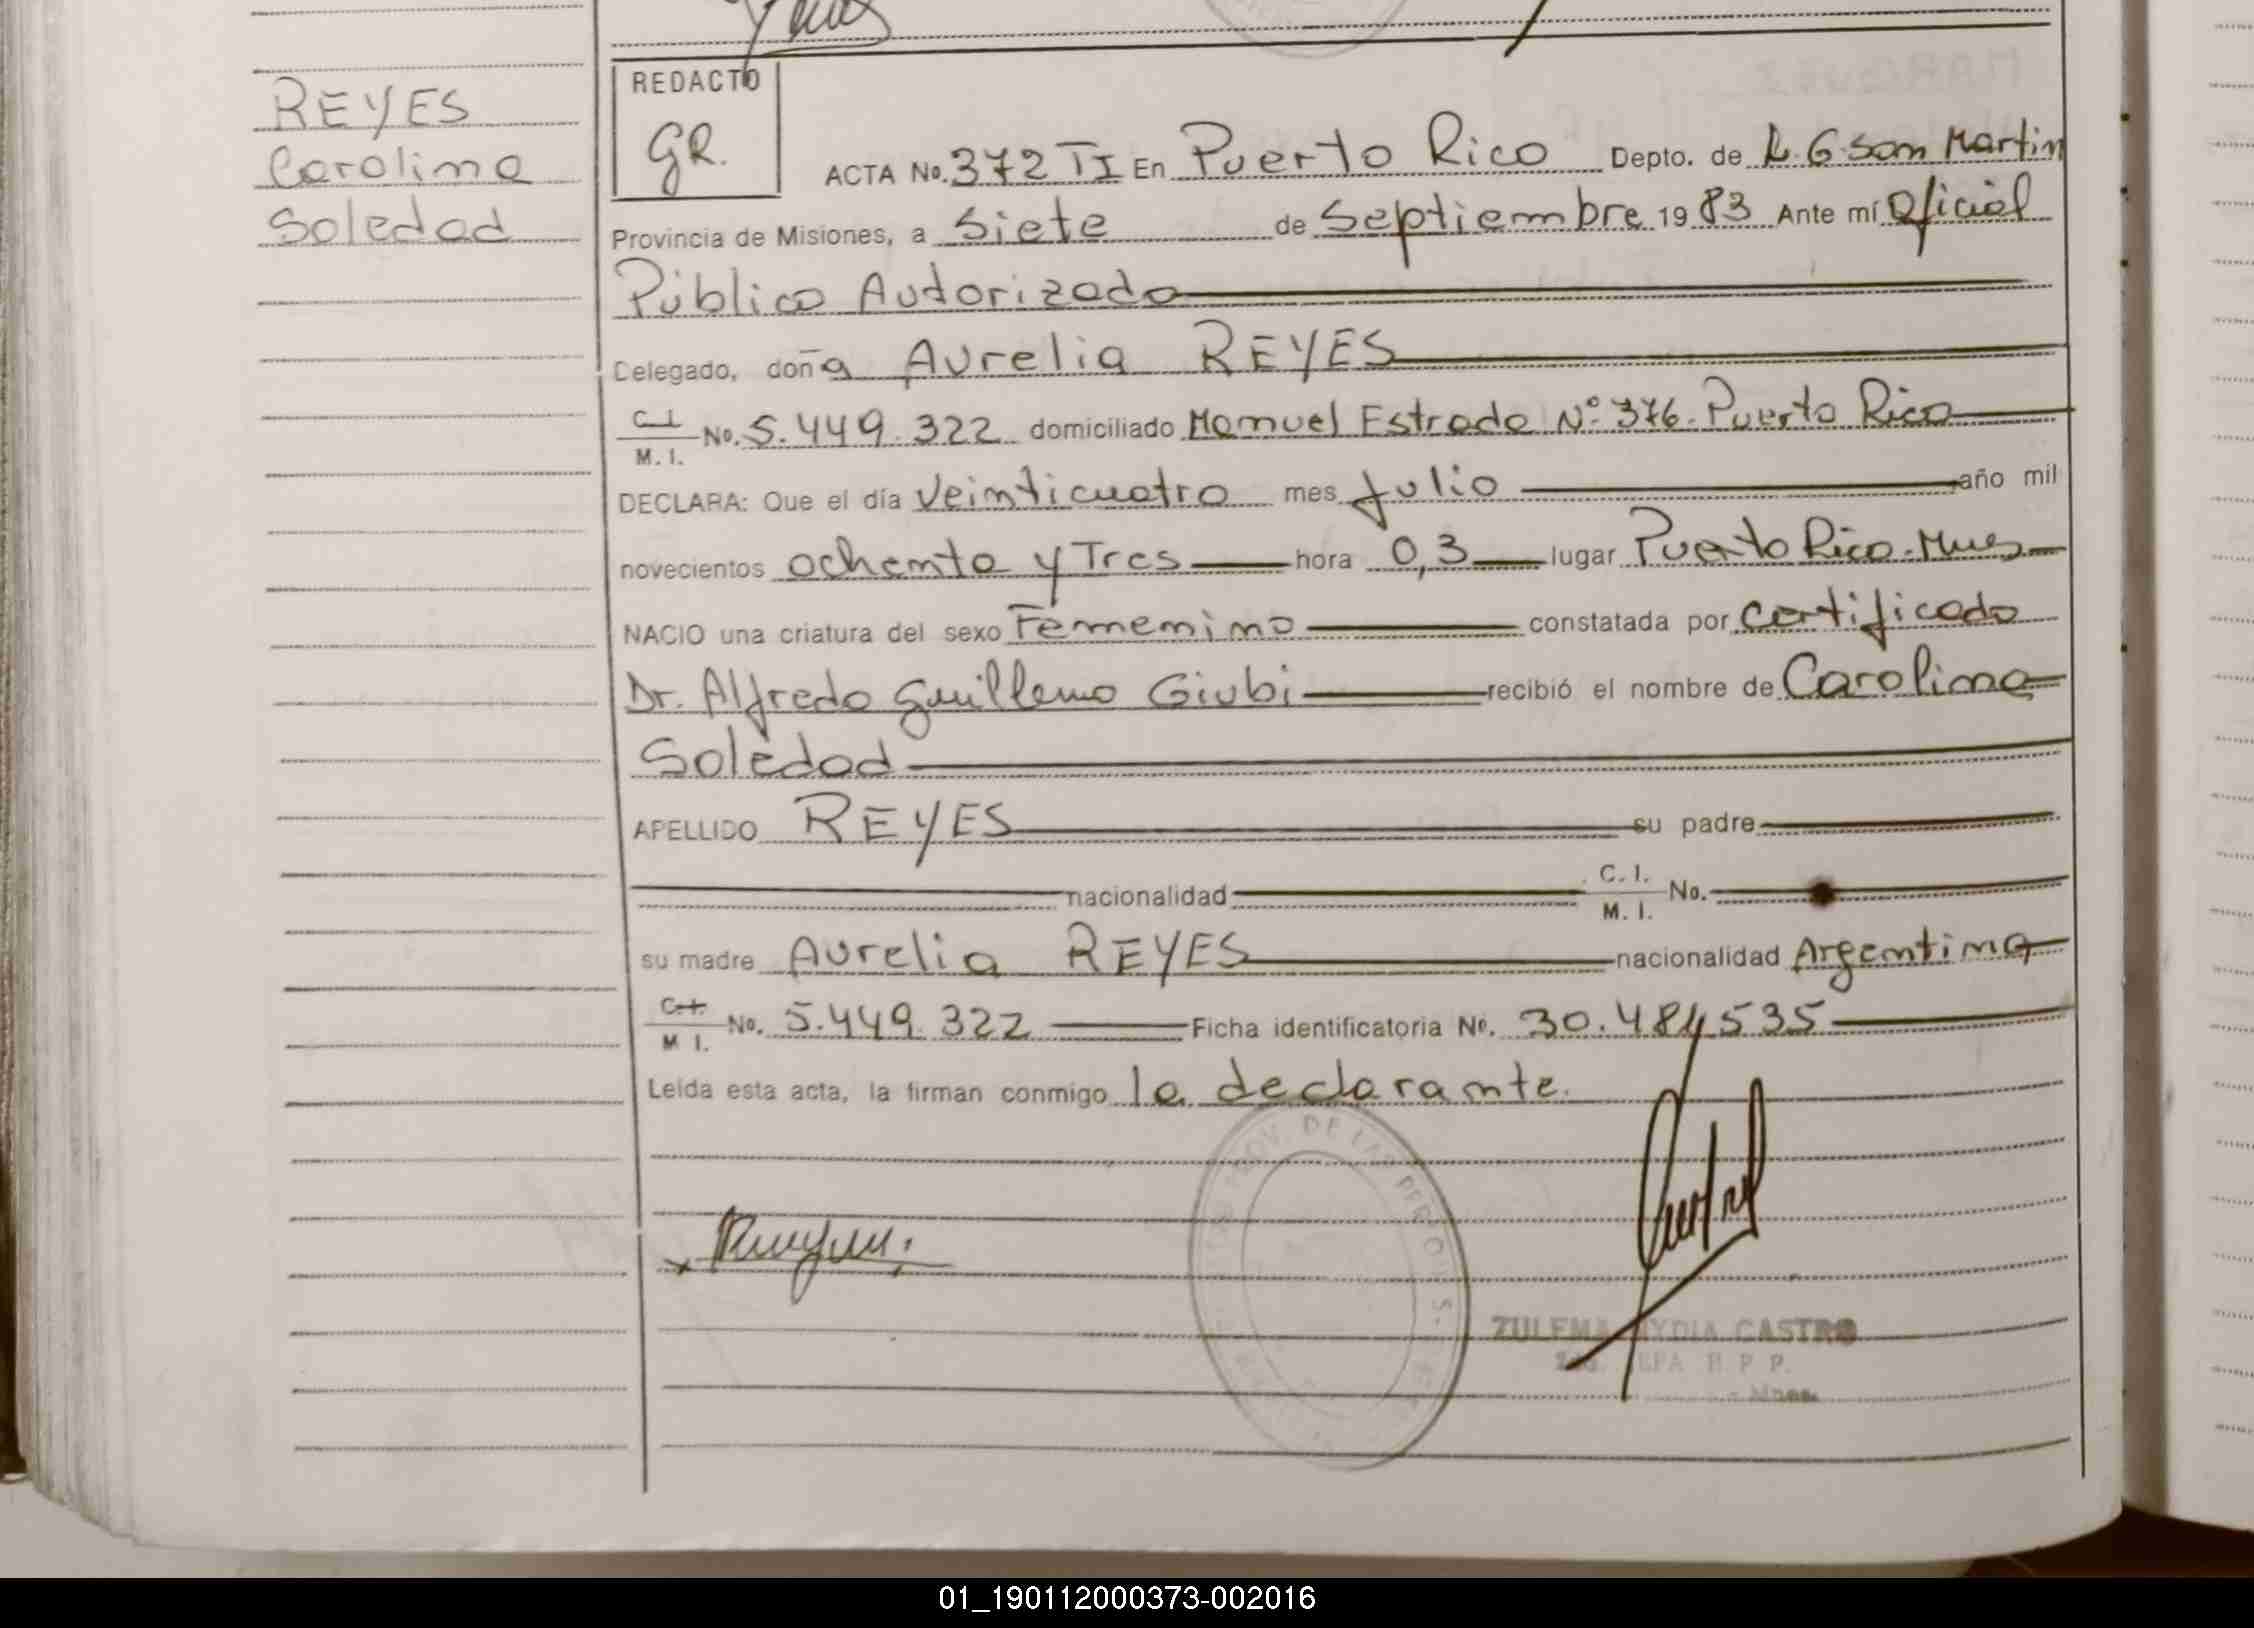 REYES
Carolina
Soledad
REDACTO
GR.
ACTA No. 372 TI En Puerto Rico Depto. de L. G. San Martin
Provincia de Misiones, a Siete de Septiembre 19 83 Ante mí Oficial
Público Autorizado
Delegado, doña Aurelia REYES
C.I. M.I. No. 5.449.322 domiciliado Manuel Estrada Nº 376. Puerto Rico
DECLARA: Que el día Veinticuatro mes Julio año mil
novecientos ochenta y Tres hora 0,3 lugar Puerto Rico. Mnes
NACIO una criatura del sexo Femenino constatada por Certificado
Dr. Alfredo Guillermo Giubi recibió el nombre de Carolina
Soledad
APELLIDO REYES su padre
nacionalidad C.I. M.I. No.
su madre Aurelia REYES nacionalidad Argentina
C.I. M.I. No. 5.449.322 Ficha identificatoria No. 30.484.535
Leída esta acta, la firman conmigo la declarante.
PROV. DE LAS PERSONAS
ZULEMA LYDIA CASTRO
JEFA R. P. P.
Mnes.
01_190112000373-002016